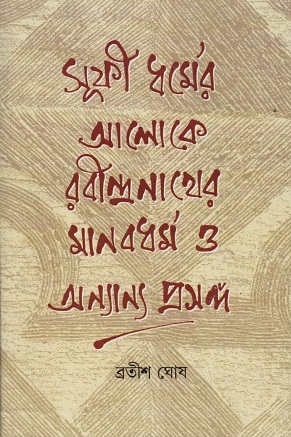 সূফী ধর্মের
আলোকে
রবীন্দ্রনাথের
মানবধর্ম ও
অন্যান্য প্রসঙ্গ
ব্রতীশ ঘোষ